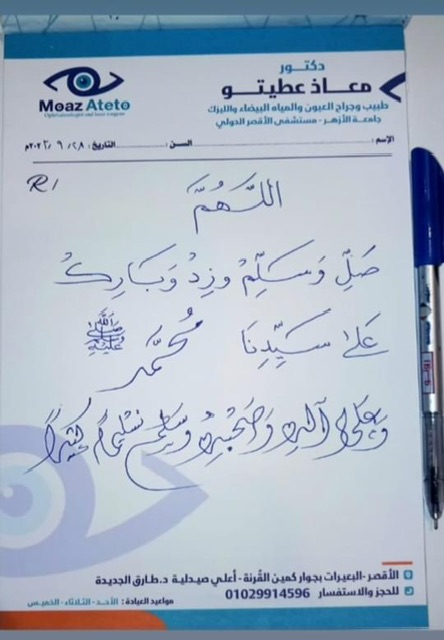 دكتـــور
معـــاذ عطيتـــو
طبيب وجراح العيون والمياه البيضاء والليزك
جامعة الأزهر - مستشفى الأقصر الدولي
Moaz Ateto
Ophthalmologist and laser surgeon
الإسم: السن: التاريخ: ٢٨ / ٩ / ٢٠٢م
R/
اللَّهُمَّ
صَلِّ وَسَلِّمْ وَزِدْ وَبَارِكْ
عَلَىٰ سَيِّدِنَا مُحَمَّد ﷺ
وَعَلَىٰ آلِهِ وَصَحْبِهِ وَسَلِّمْ تَسْلِيمًا كَثِيرًا
الأقصر - البعيرات بجوار كمين القُرنة - أعلي صيدلية د.طارق الجديدة
للحجز والاستفسار 01029914596
مواعيد العيادة: الأحد - الثلاثاء - الخميس